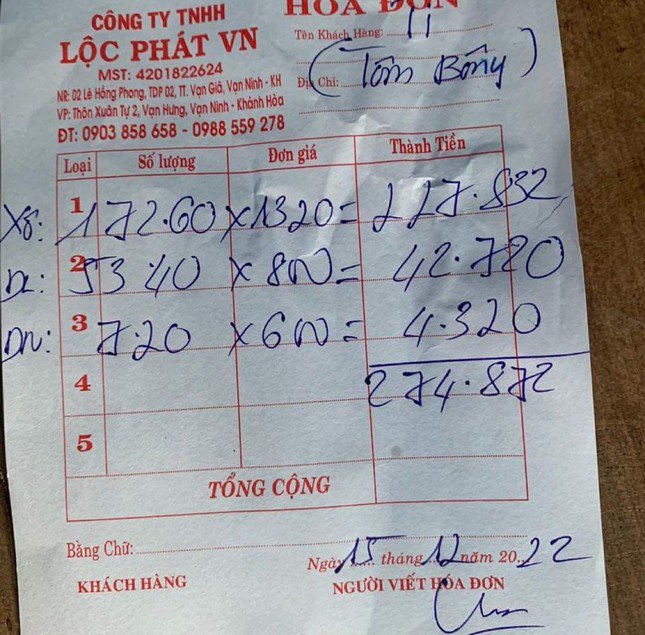 CÔNG TY TNHH
LỘC PHÁT VN
MST: 4201822624
NR: 02 Lê Hồng Phong, TDP 02, TT. Vạn Giã, Vạn Ninh - KH
VP: Thôn Xuân Tự 2, Vạn Hưng, Vạn Ninh - Khánh Hòa
ĐT: 0903 858 658 - 0988 559 278
HÓA ĐƠN
Tên Khách Hàng:
Địa Chỉ: (Tôm Bông)
Loại Số lượng Đơn giá Thành Tiền
Xô: 1 172.60 x 1320 = 227.832
2 53 40 x 800 = 42.720
3 7.20 x 600 = 4.320
4 274.872
5
TỔNG CỘNG
Bằng Chữ:
Ngày 15 tháng 12 năm 20 22
KHÁCH HÀNG NGƯỜI VIẾT HÓA ĐƠN